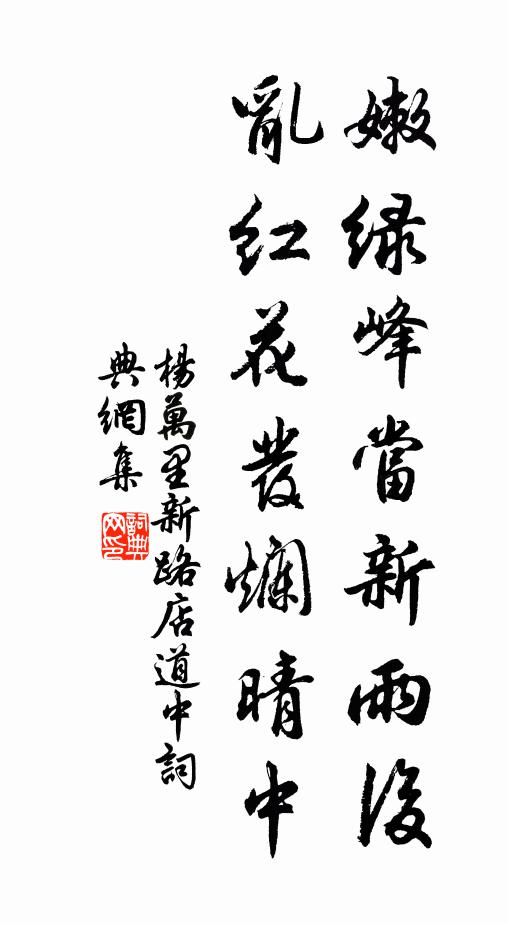 嫩绿峰當新雨後
亂紅花發爛晴中
楊萬里新路店道中詞
典網集
詞典
网印